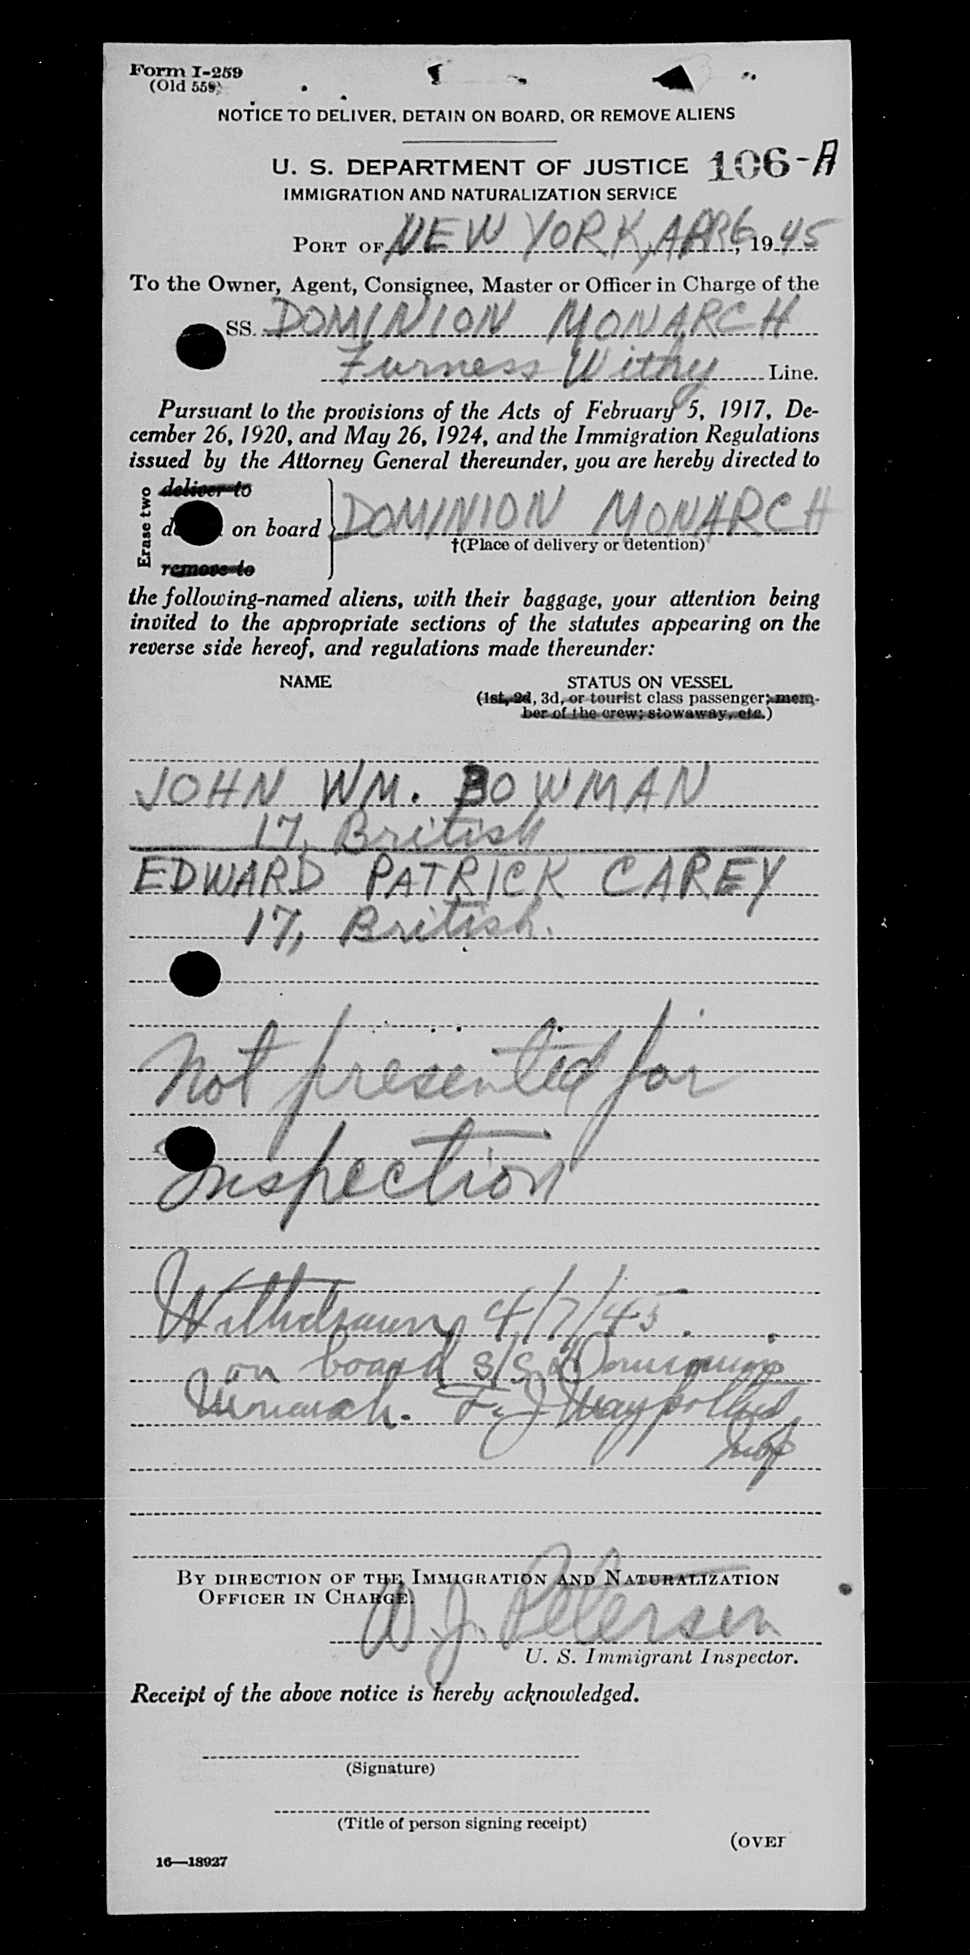 Form I-259
(Old 558)
NOTICE TO DELIVER, DETAIN ON BOARD, OR REMOVE ALIENS
U. S. DEPARTMENT OF JUSTICE 106-A
IMMIGRATION AND NATURALIZATION SERVICE
PORT OF NEW YORK, APR 6, 1945
To the Owner, Agent, Consignee, Master or Officer in Charge of the
SS. DOMINION MONARCH
Furness Withy Line.
Pursuant to the provisions of the Acts of February 5, 1917, De-
cember 26, 1920, and May 26, 1924, and the Immigration Regulations
issued by the Attorney General thereunder, you are hereby directed to
Erase two
deliver to
on board DOMINION MONARCH
†(Place of delivery or detention)
remove to
the following-named aliens, with their baggage, your attention being
invited to the appropriate sections of the statutes appearing on the
reverse side hereof, and regulations made thereunder:
NAME STATUS ON VESSEL
(1st, 2d, 3d, or tourist class passenger; mem-
ber of the crew; stowaway, etc.)
JOHN WM. BOWMAN
17, British
EDWARD PATRICK CAREY
17, British.
Not presented for
Inspection
Withdrawn 4/7/45.
on board S/S Dominion
Monarch. F. J. Maypollard
Insp
BY DIRECTION OF THE IMMIGRATION AND NATURALIZATION
OFFICER IN CHARGE.
W. J. Petersen
U. S. Immigrant Inspector.
Receipt of the above notice is hereby acknowledged.
(Signature)
(Title of person signing receipt)
(OVER
16—18927